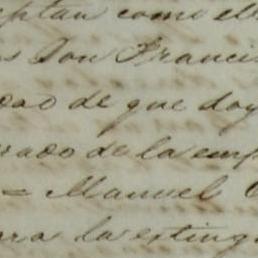 eptan como el
s Don Francis
dad de que doy
rado de la emp
= Manuel
ara la exting